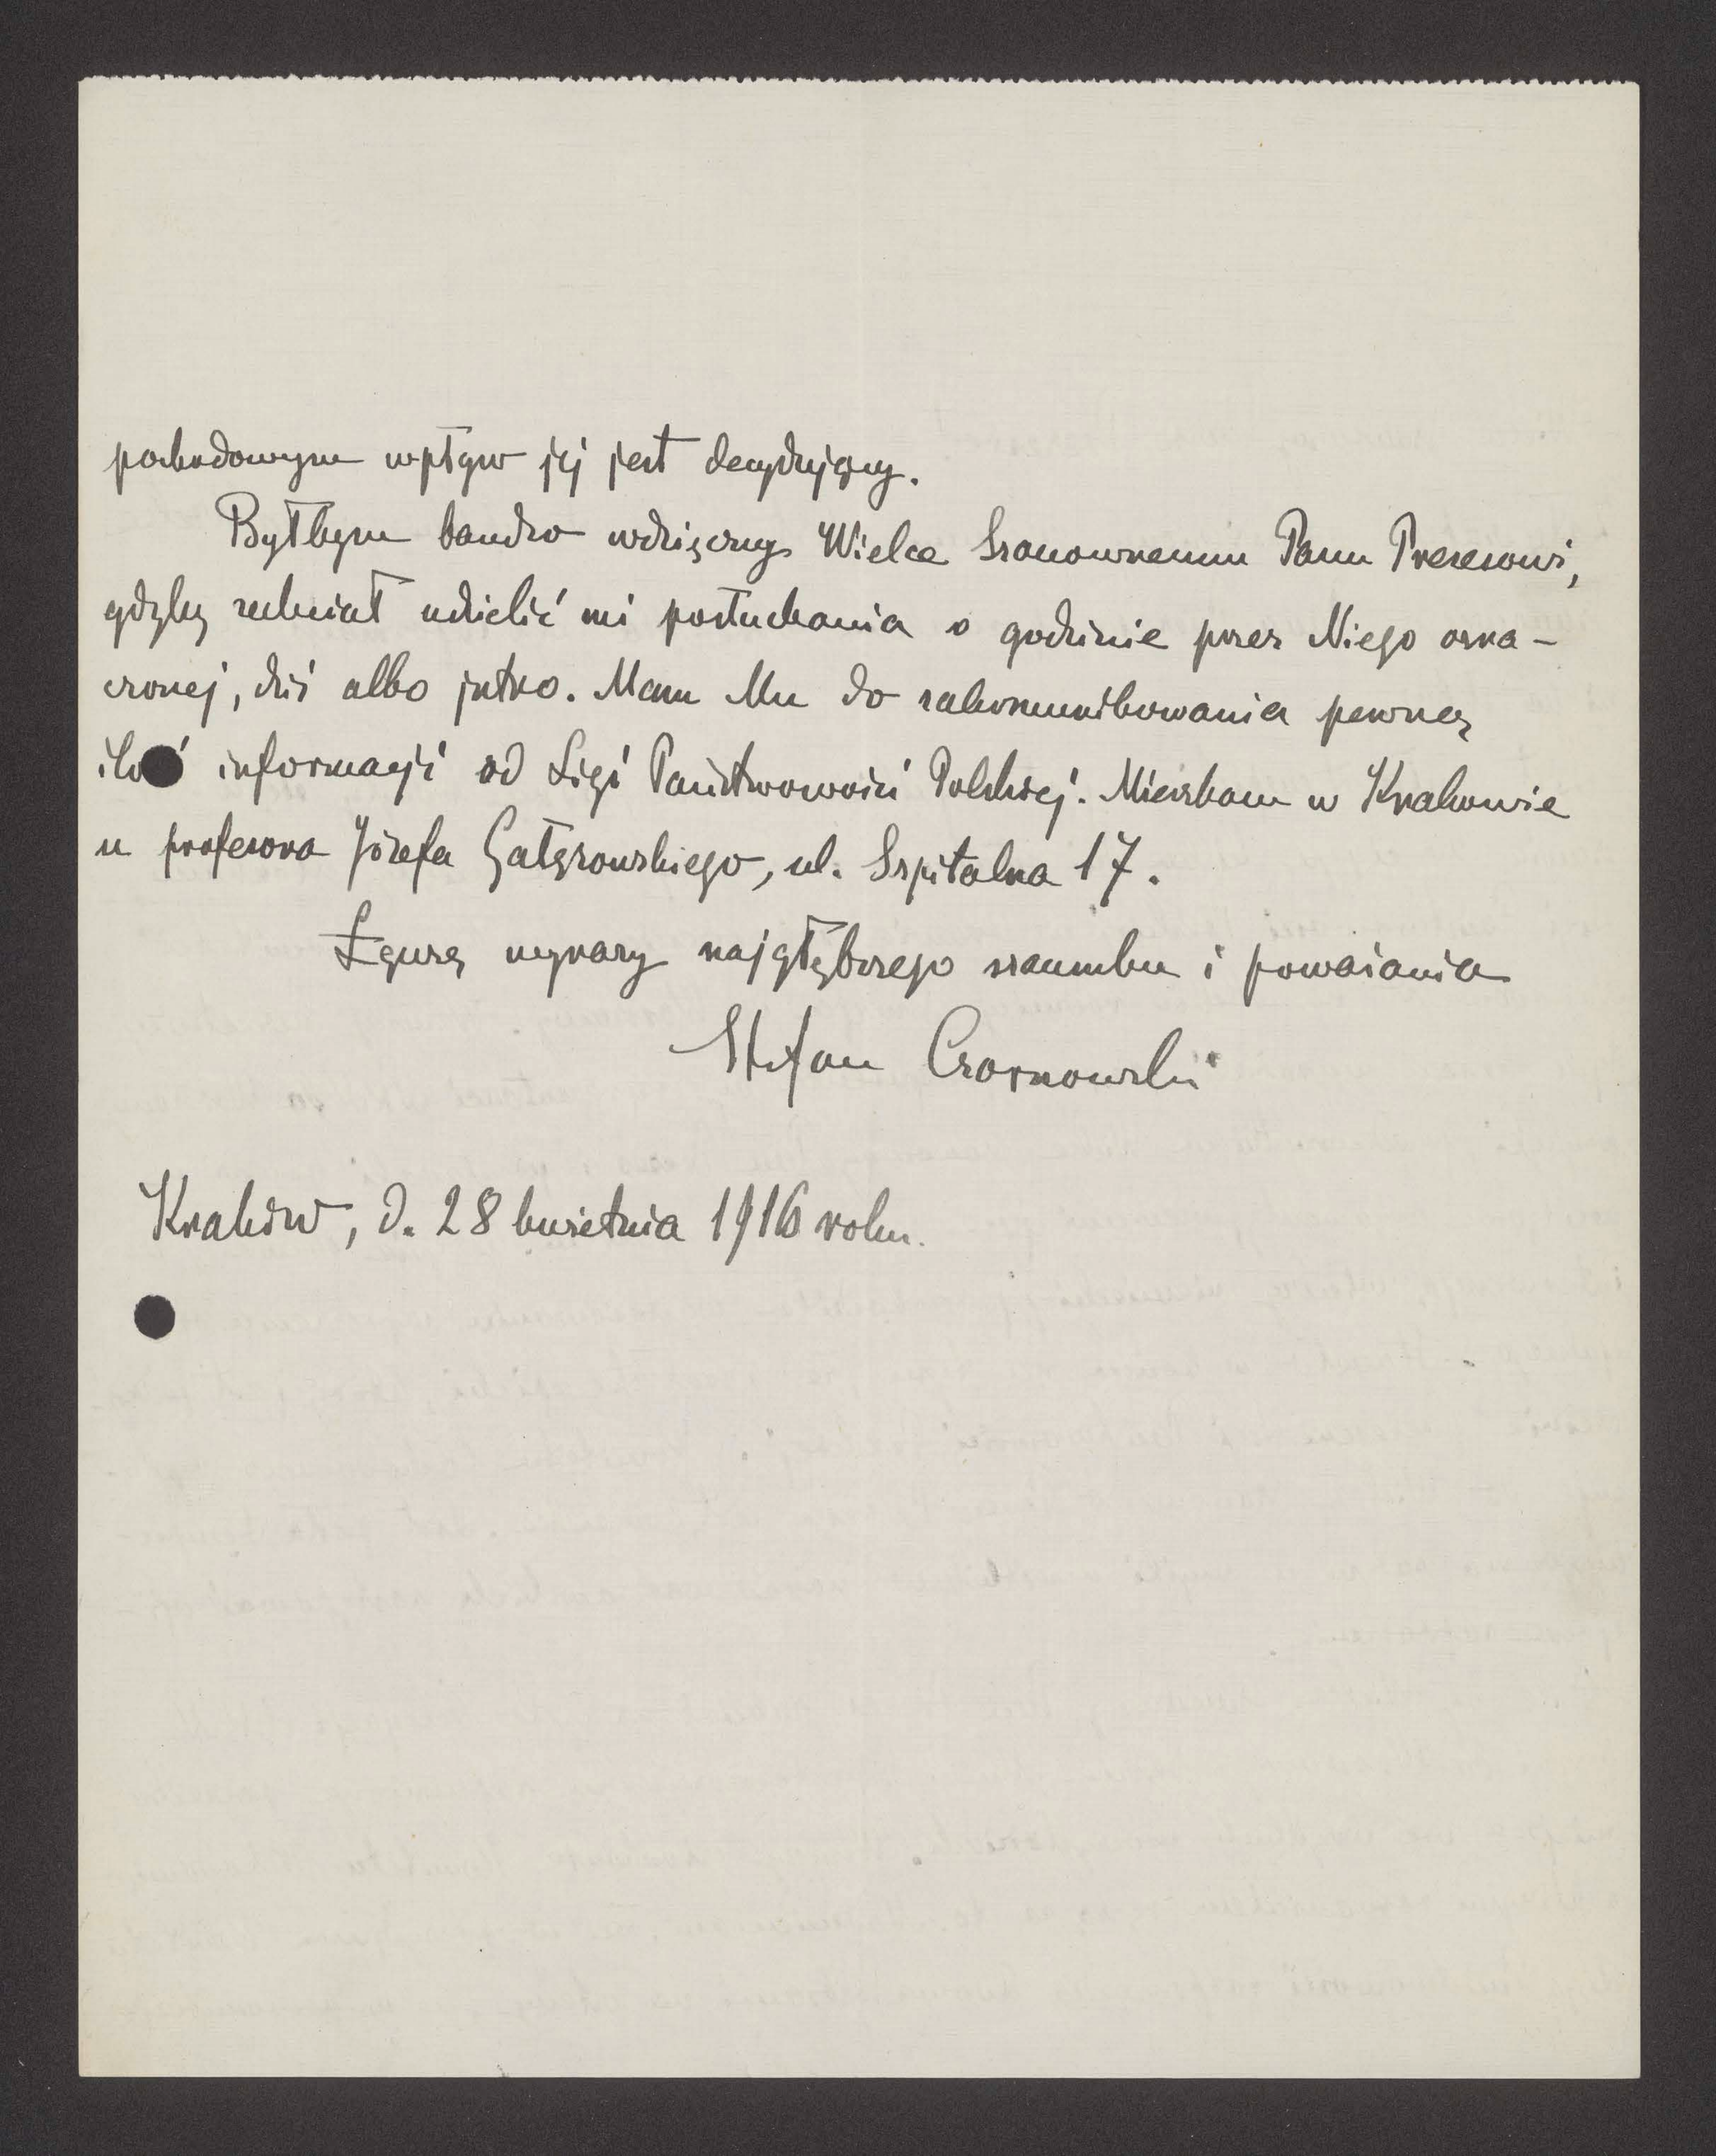 pochodowym wpływ jej jest decydujący.
Byłbym bardzo wdzięczny Wielce Szanownemu Panu Prezesowi,
gdyby zechciał udzielić mi posłuchania o godzinie przez Niego ozna-
czonej, dziś albo jutro. Mam Mu do zakomunikowania pewną
ilość informacji od Ligi Państwowości Polskiej. Mieszkam w Krakowie
u profesora Józefa Gałęzowskiego, ul. Szpitalna 17.
Łączę wyrazy najgłębszego szacunku i poważania
Stefan Czarnowski
Kraków, d. 28 kwietnia 1916 roku.